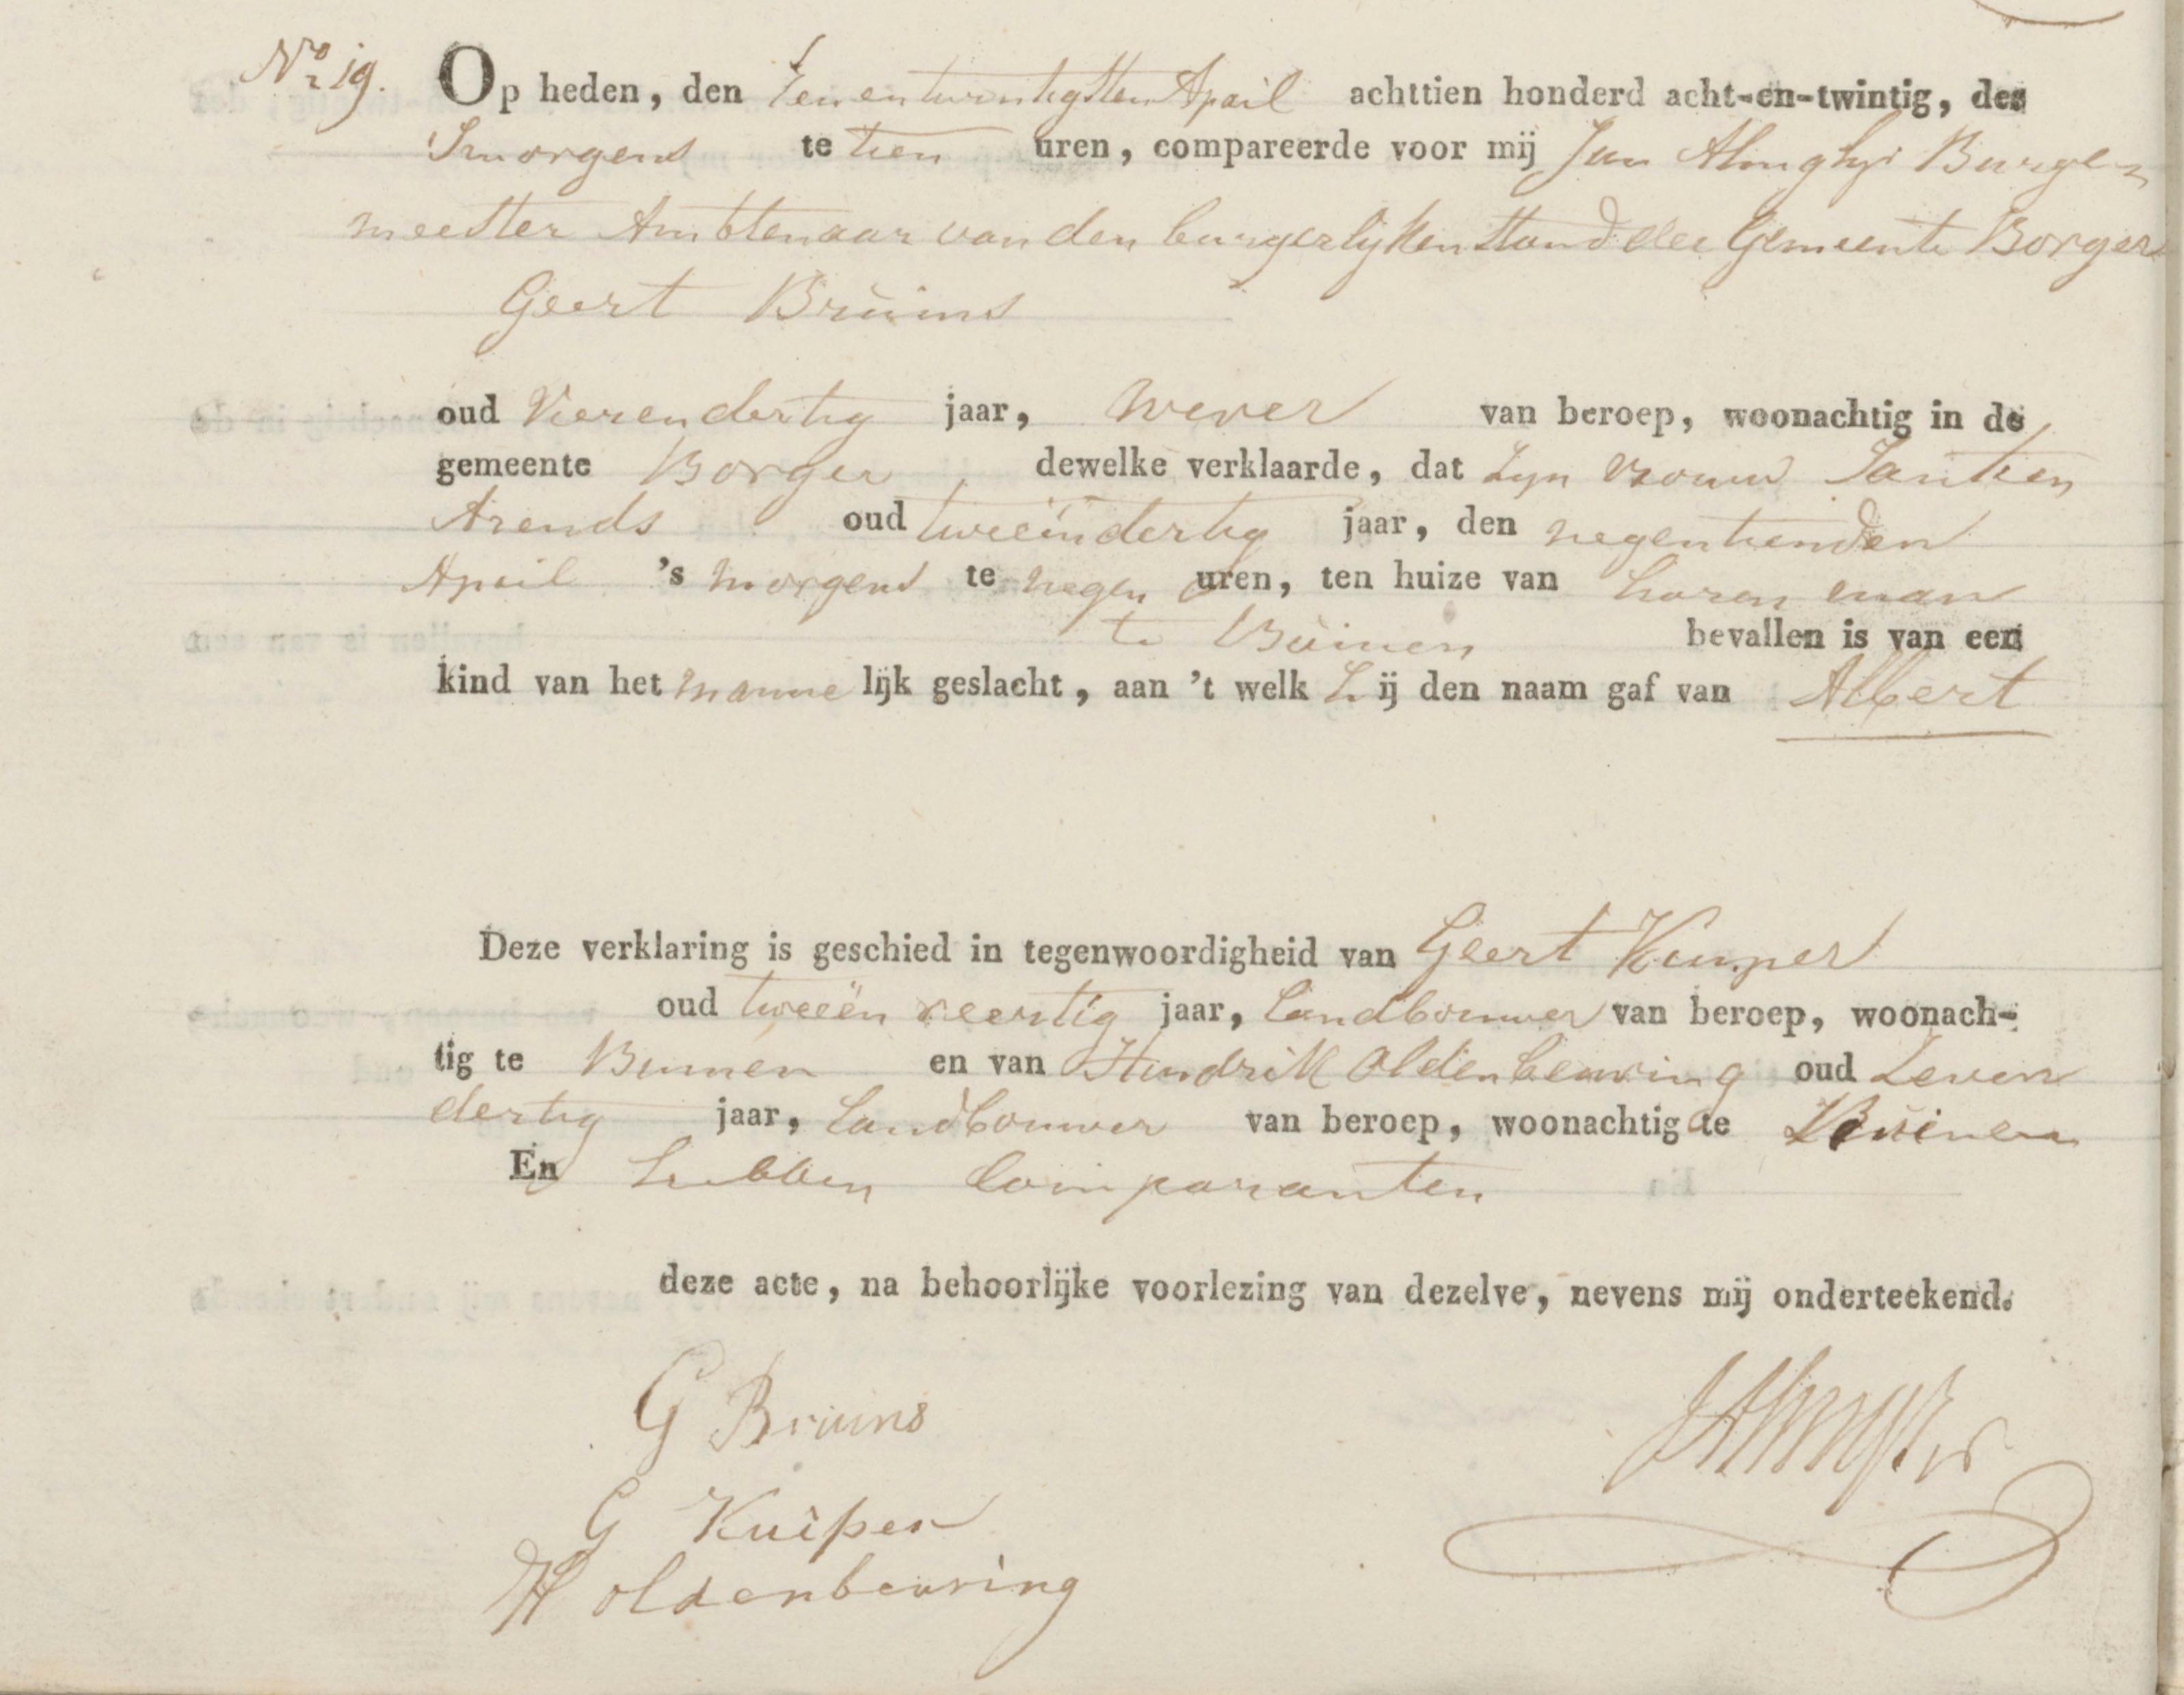 No 19. Op heden, den Eenentwintigsten April achttien honderd acht-en-twintig, des
Smorgens te tien uren, compareerde voor mij Jan Alinghs Burge=
meester Ambtenaar van den burgerlijken Stand der Gemeente Borger
Geert Bruins
oud Vierendertig jaar, wever van beroep, woonachtig in de
gemeente Borger dewelke verklaarde, dat zyn vrouw Jantien
Arends oud tweëindertig jaar, den negentienden
April 's morgens te negen uren, ten huize van haren man
te Buinen bevallen is van een
kind van het manne lijk geslacht, aan 't welk Hij den naam gaf van Albert
Deze verklaring is geschied in tegenwoordigheid van Geert Kuiper
oud tweeën veertig jaar, landbouwer van beroep, woonach-
tig te Buinen en van Hindrik Oldenbeuving oud zeven
dertig jaar, Landbouwer van beroep, woonachtig te Buinen
En hebben Comparanten
deze acte, na behoorlijke voorlezing van dezelve, nevens mij onderteekend.
G Bruins
G Kuiper
H oldenbeuving